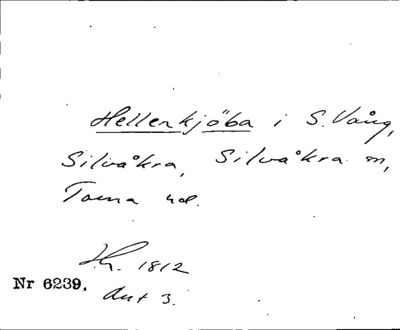 Hellerkjöba i S. Vång,
Silvåkra, Silvåkra sn,
Torna hd.
1812
Nr 6239. Akt 3.